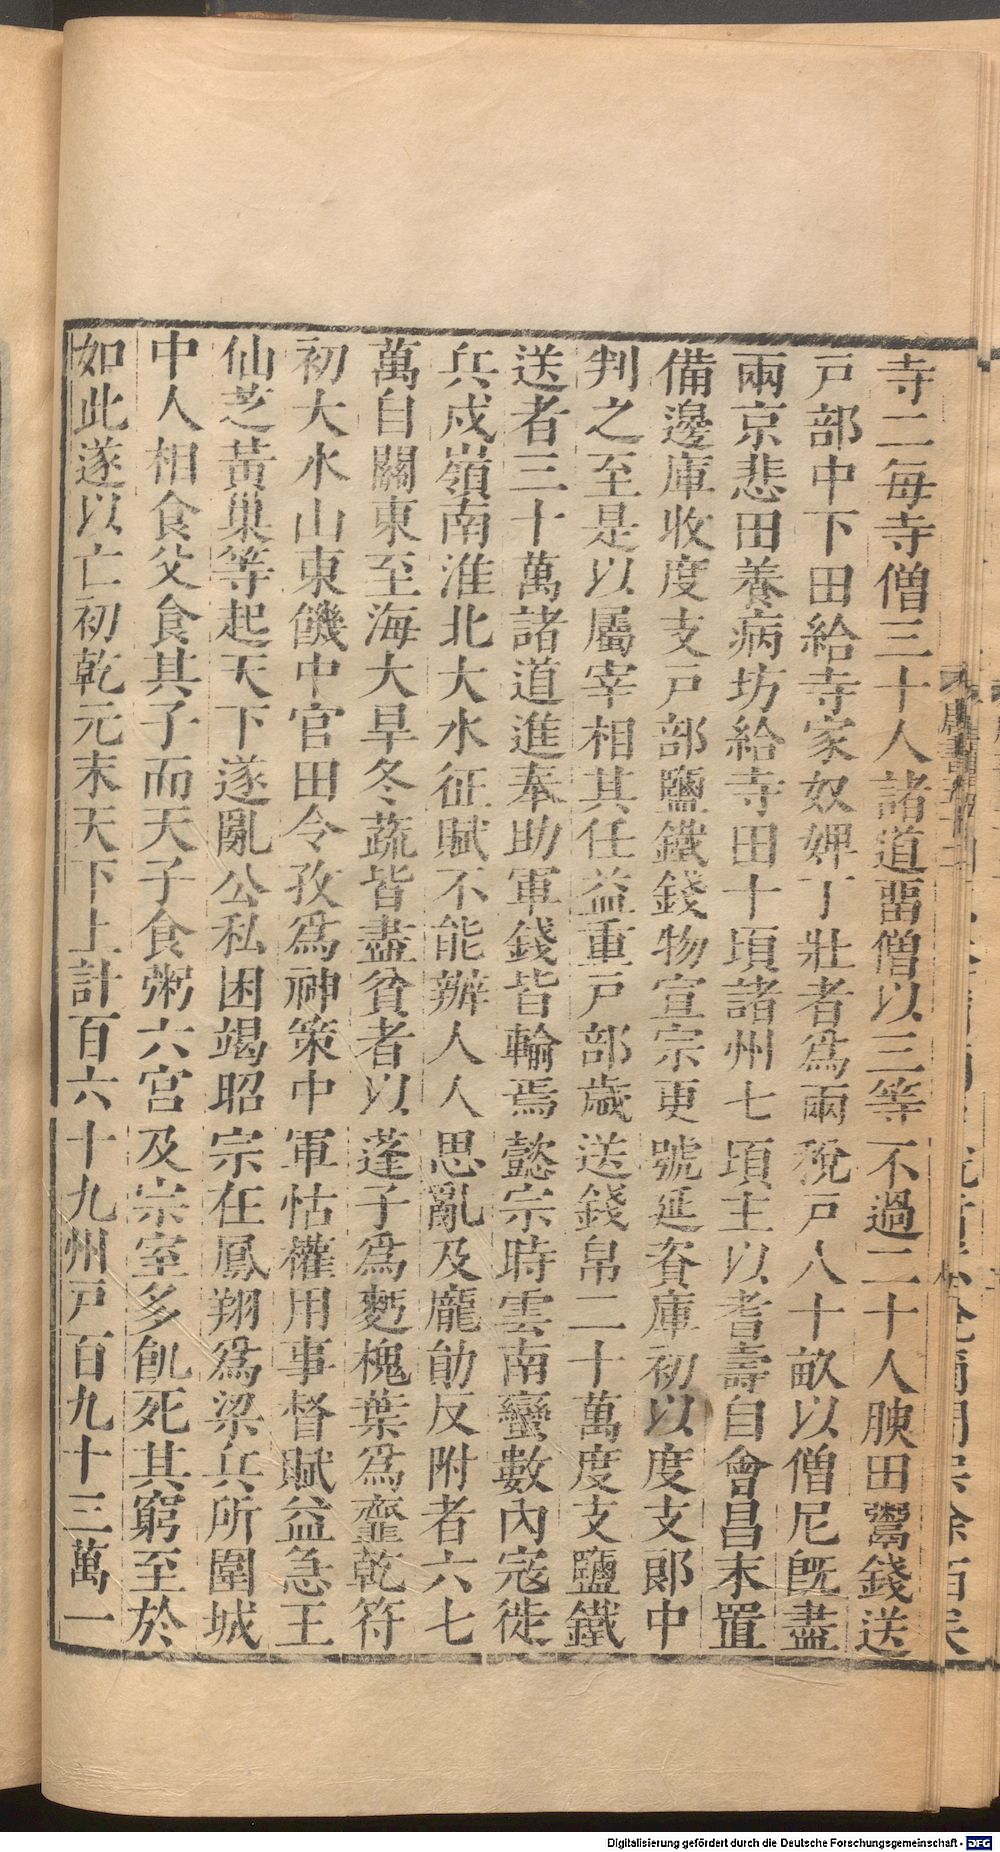 寺二每寺僧三十人諸道畱僧以三等不過二十人腴田鬻錢送
戸部中下田給寺家奴婢丁壯者爲兩稅戸人十畝以僧尼旣盡
兩京悲田養病坊給寺田十頃諸州七頃主以耆壽自會昌末置
備邊庫收度支戸部鹽鐵錢物宣宗更號延資庫初以度支郎中
判之至是以屬宰相其任益重戸部歲送錢帛二十萬度支鹽鐵
送者三十萬諸道進奉助軍錢皆輸焉懿宗時雲南蠻數內寇徙
兵戍嶺南淮北大水征賦不能辦人人思亂及龐勛反附者六七
萬自關東至海大旱冬蔬皆盡貧者以蓬子爲麪槐葉爲齏乾符
初大水山東饑中官田令孜爲神策中軍怙權用事督賦益急王
仙芝黃巢等起天下遂亂公私困竭昭宗在鳳翔爲梁兵所圍城
中人相食父食其子而天子食粥六宮及宗室多飢死其窮至於
如此遂以亡初乾元末天下上計百六十九州戸百九十三萬一
Digitalisierung gefördert durch die Deutsche Forschungsgemeinschaft - DFG